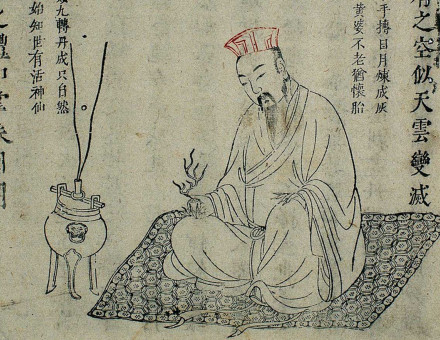 之空似天雲變滅
手摶日月煉成灰
黃婆不老猶懷胎
九轉丹成只自然
始知世有活神仙